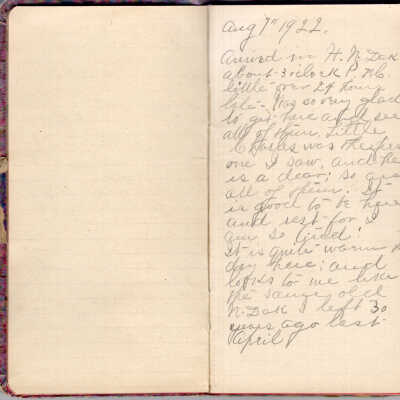 Aug 7" 1922.
Arrived in H. N. Dak
about 3 oclock P. M. a
little over 24 hours
late. Was so very glad
to get here and see
all of them. Little
Charles was the first
one I saw, and he
is a dear; so are
all of them. It
is good to be here
and rest for I
am so tired!
It is quite warm &
dry here; and
looks to me like
the same old
N. Dak I left 30
years ago last
April